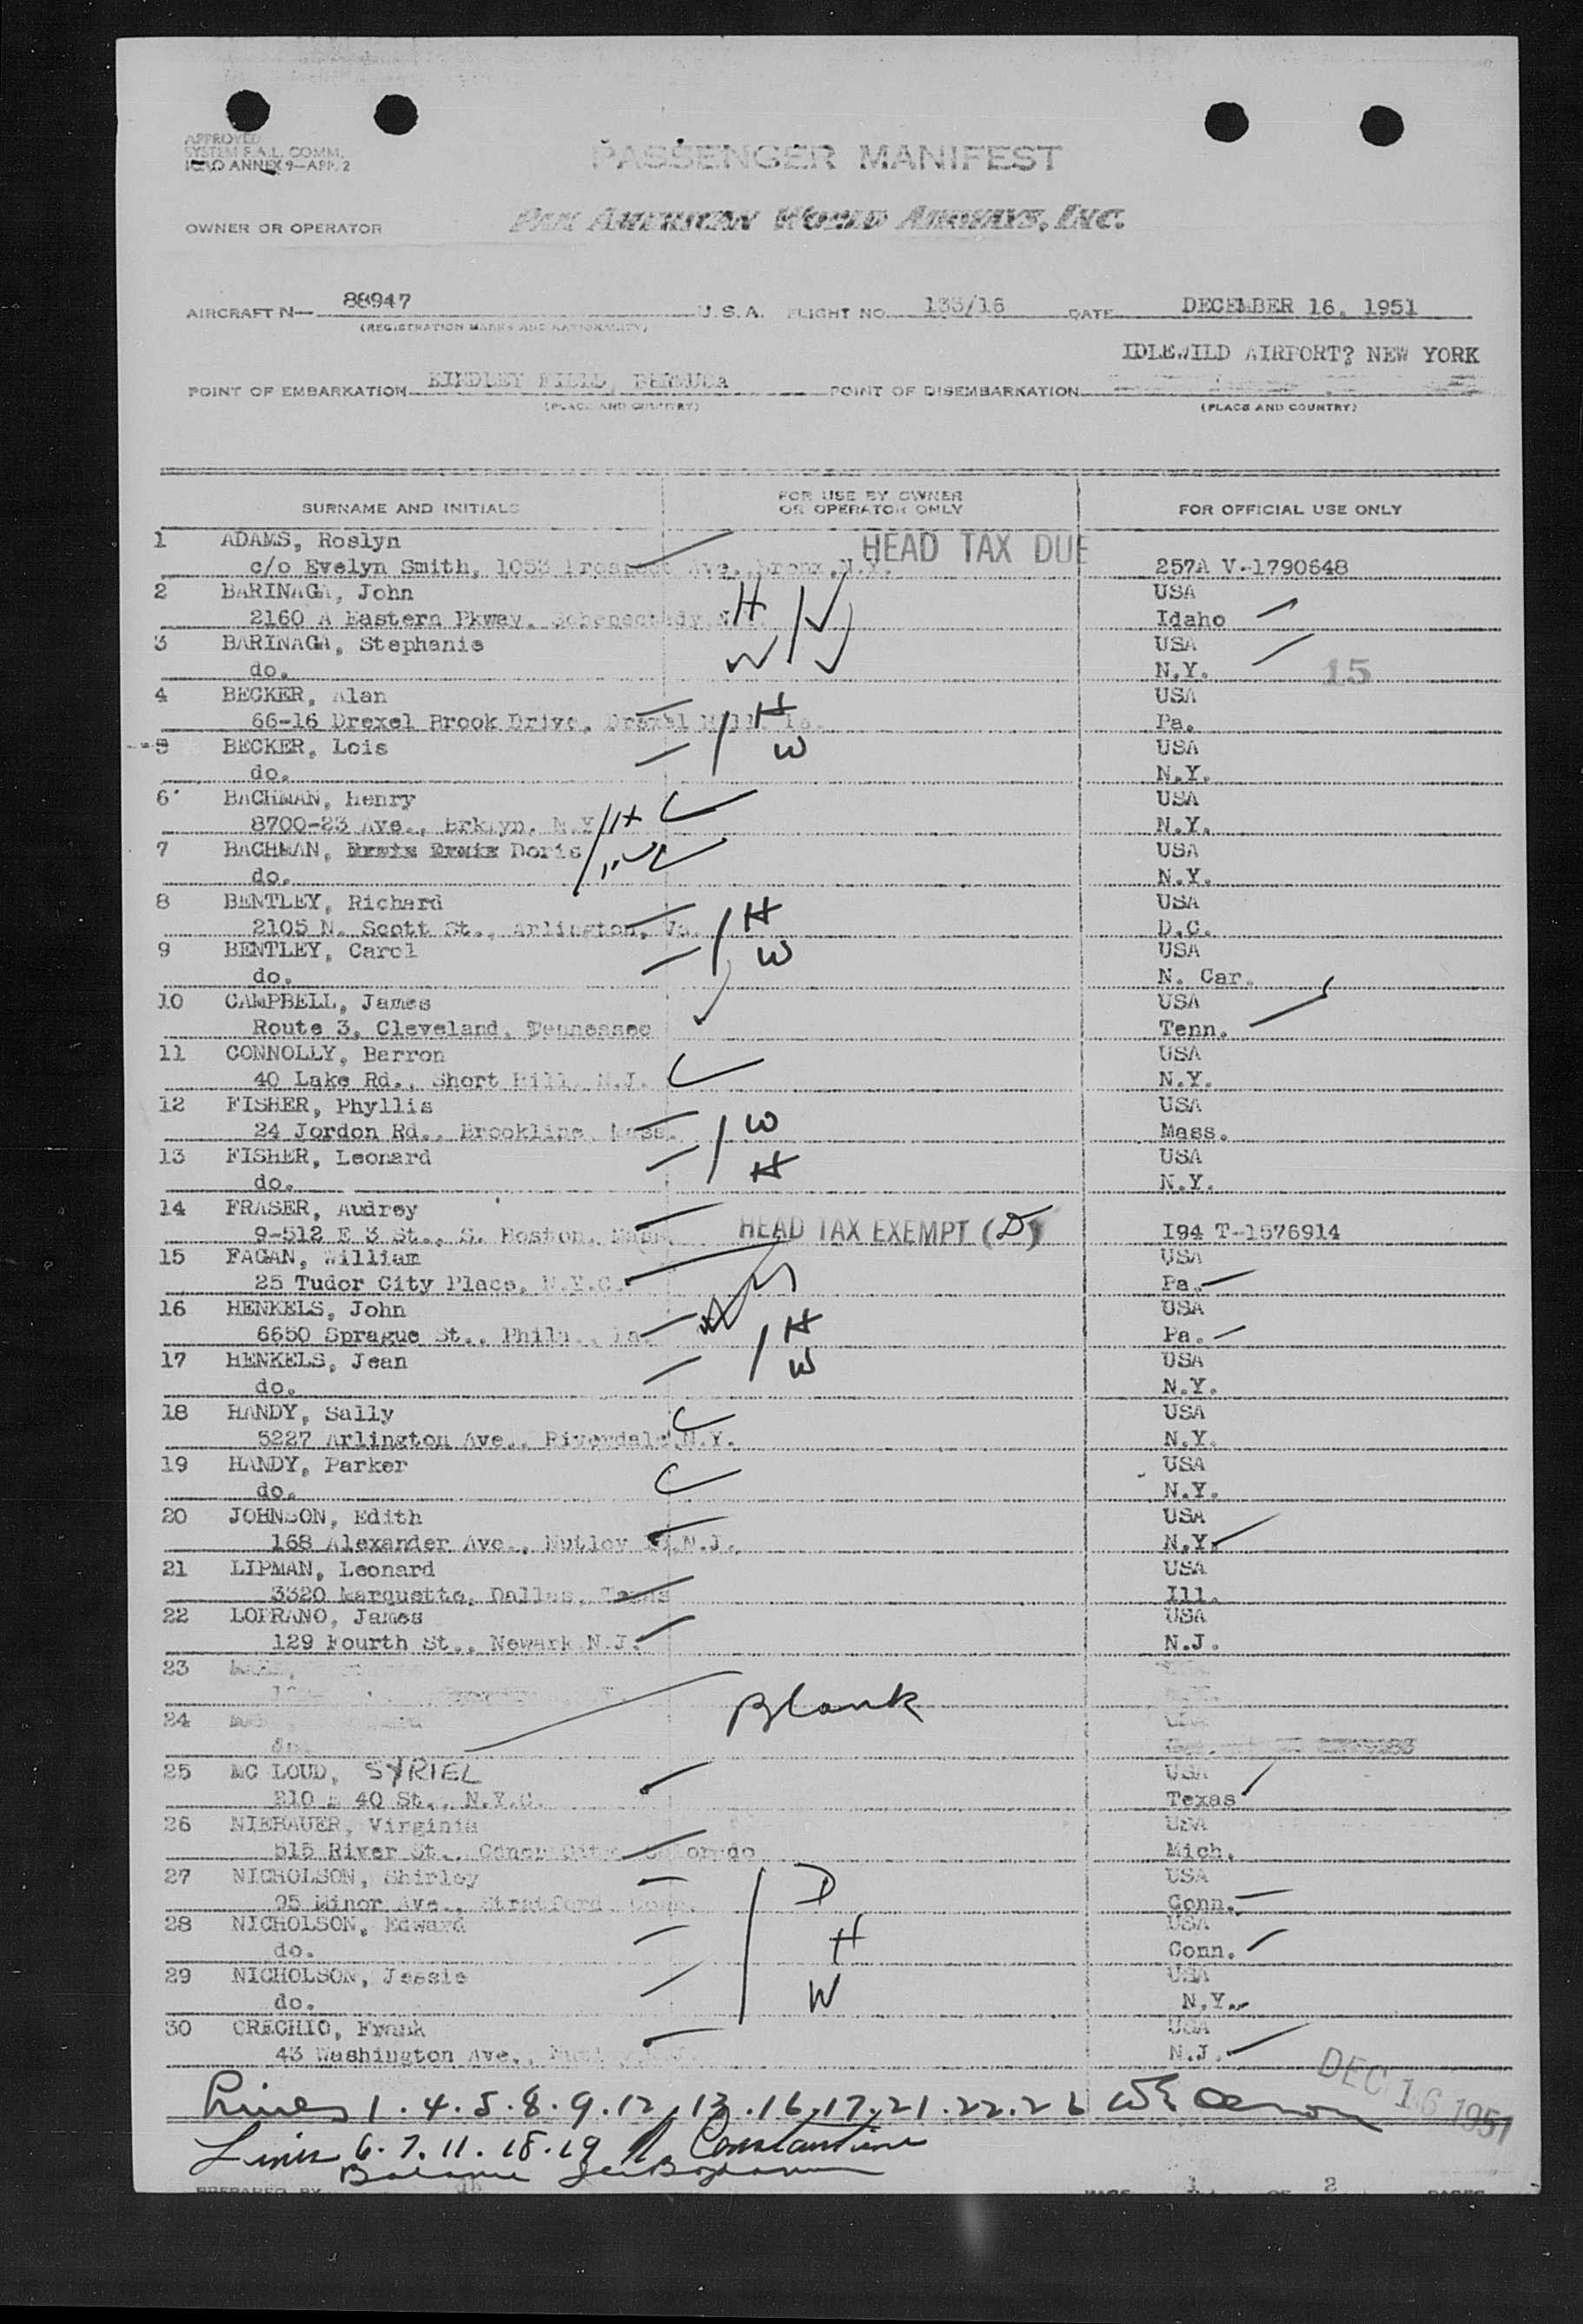 APPROVED
SYSTEM F.A.L. COMM.
ICAO ANNEX 9—APP. 2
PASSENGER MANIFEST
OWNER OR OPERATOR PAN AMERICAN WORLD AIRWAYS, INC.
AIRCRAFT N— 88947 U.S.A. FLIGHT NO. 133/16 DATE DECEMBER 16, 1951
(REGISTRATION MARKS AND NATIONALITY)
IDLEWILD AIRPORT? NEW YORK
POINT OF EMBARKATION KINDLEY FIELD, BERMUDA POINT OF DISEMBARKATION
(PLACE AND COUNTRY) (PLACE AND COUNTRY)
SURNAME AND INITIALS FOR USE BY OWNER OR OPERATOR ONLY FOR OFFICIAL USE ONLY
1 ADAMS, Roslyn HEAD TAX DUE
c/o Evelyn Smith, 1053 Prospect Ave., Bronx, N.Y. 257A V-1790648
2 BARINAGA, John H USA
2160 A Eastern Pkway. Schenectady, N.Y. Idaho
3 BARINAGA, Stephanie W USA
do. N.Y. 15
4 BECKER, Alan H USA
66-16 Drexel Brook Drive, Drexel Hill, Pa. Pa.
5 BECKER, Lois W USA
do. N.Y.
6 BACHMAN, Henry H USA
8700-23 Ave., Brklyn, N.Y. N.Y.
7 BACHMAN, Doris W USA
do. N.Y.
8 BENTLEY, Richard H USA
2105 N. Scott St., Arlington, Va. D.C.
9 BENTLEY, Carol W USA
do. N. Car.
10 CAMPBELL, James USA
Route 3, Cleveland, Tennessee Tenn.
11 CONNOLLY, Barron USA
40 Lake Rd., Short Hill, N.J. N.Y.
12 FISHER, Phyllis W USA
24 Jordon Rd., Brookline, Mass. Mass.
13 FISHER, Leonard H USA
do. N.Y.
14 FRASER, Audrey
9-512 E 3 St., S. Boston, Mass. HEAD TAX EXEMPT (D) I94 T-1576914
15 FAGAN, William USA
25 Tudor City Place, N.Y.C. Pa.
16 HENKELS, John H USA
6650 Sprague St., Phila., Pa. Pa.
17 HENKELS, Jean W USA
do. N.Y.
18 HANDY, Sally USA
5227 Arlington Ave., Riverdale, N.Y. N.Y.
19 HANDY, Parker USA
do. N.Y.
20 JOHNSON, Edith USA
168 Alexander Ave., Nutley N.J. N.Y.
21 LIPMAN, Leonard USA
3320 Marquette, Dallas, Texas Ill.
22 LOPRANO, James USA
129 Fourth St., Newark N.J. N.J.
23
24 Blank
do.
25 MC LOUD, SYRIEL USA
210 E 40 St., N.Y.C. Texas
26 NIEBAUER, Virginia USA
515 River St., Canon City, Colorado Mich.
27 NICHOLSON, Shirley D USA
95 Minor Ave., Stratford, Conn. Conn.
28 NICHOLSON, Edward H USA
do. Conn.
29 NICHOLSON, Jessie W USA
do. N.Y.
30 ORECHIO, Frank USA
43 Washington Ave., N.J.
DEC 16 1951
Lines 1.4.5.8.9.12.13.16.17.21.22.26
Lines 6.7.11.18.19 Constantine
Balance
PREPARED BY PAGE 1 OF 2 PAGES